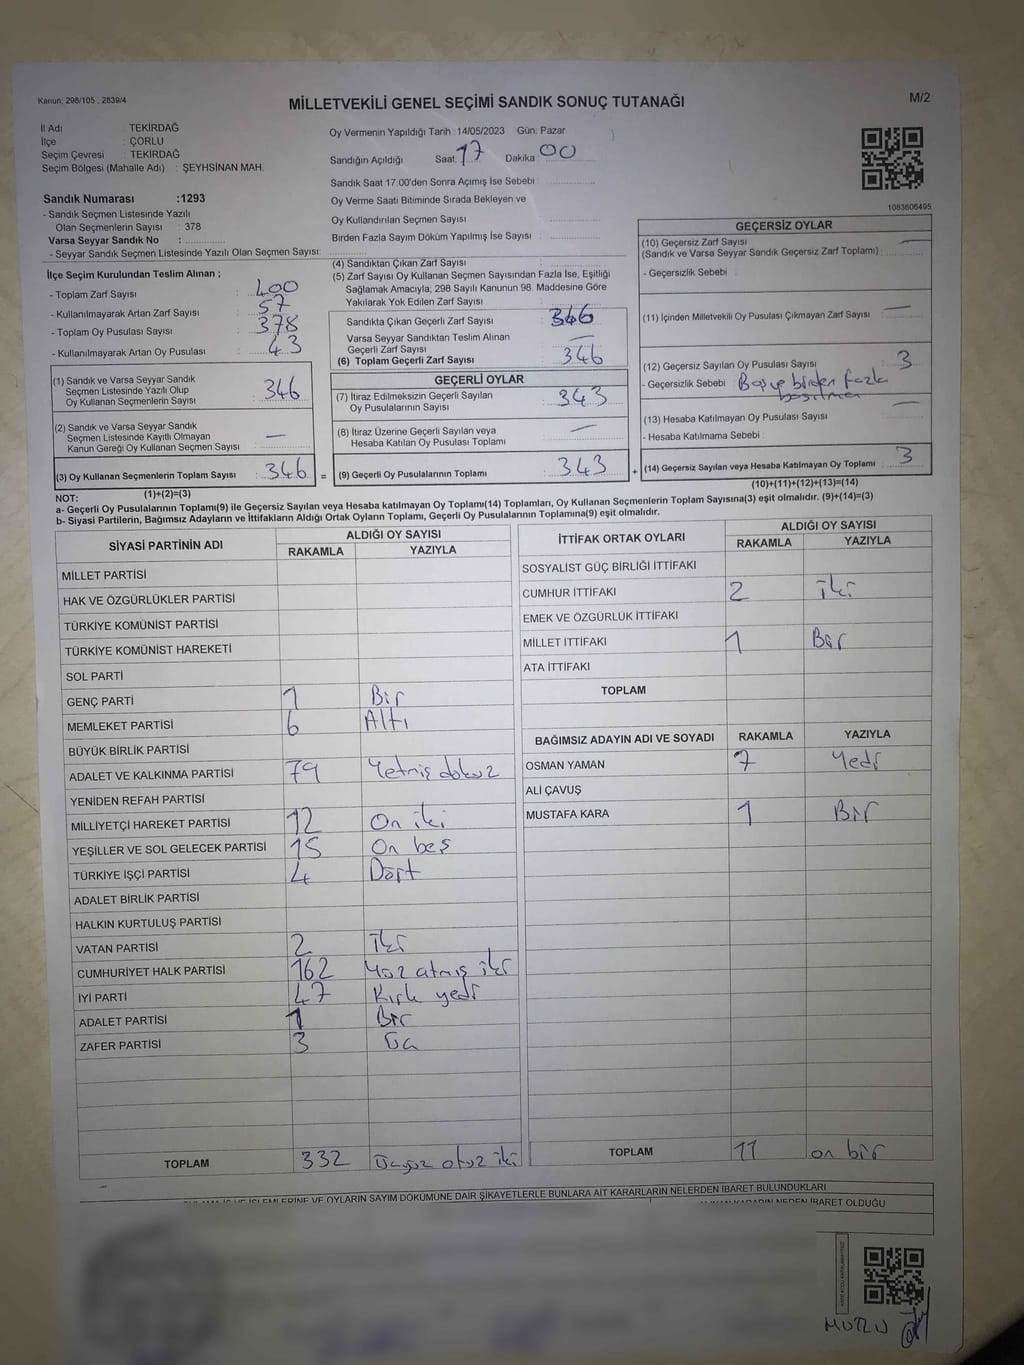 Kanun: 298/105 , 2839/4
MİLLETVEKİLİ GENEL SEÇİMİ SANDIK SONUÇ TUTANAĞI
M/2
İl Adı : TEKİRDAĞ
İlçe : ÇORLU
Seçim Çevresi : TEKİRDAĞ
Seçim Bölgesi (Mahalle Adı) : ŞEYHSİNAN MAH.
Sandık Numarası :1293
- Sandık Seçmen Listesinde Yazılı
Olan Seçmenlerin Sayısı : 378
Varsa Seyyar Sandık No :
- Seyyar Sandık Seçmen Listesinde Yazılı Olan Seçmen Sayısı :
İlçe Seçim Kurulundan Teslim Alınan ;
- Toplam Zarf Sayısı : 400
- Kullanılmayarak Artan Zarf Sayısı : 57
- Toplam Oy Pusulası Sayısı : 378
- Kullanılmayarak Artan Oy Pusulası : 43
(1) Sandık ve Varsa Seyyar Sandık
Seçmen Listesinde Yazılı Olup
Oy Kullanan Seçmenlerin Sayısı : 346
(2) Sandık ve Varsa Seyyar Sandık
Seçmen Listesinde Kayıtlı Olmayan
Kanun Gereği Oy Kullanan Seçmen Sayısı : —
(3) Oy Kullanan Seçmenlerin Toplam Sayısı : 346 =
(1)+(2)=(3)
Oy Vermenin Yapıldığı Tarih :14/05/2023 Gün: Pazar
Sandığın Açıldığı Saat: 17 Dakika : 00
Sandık Saat 17:00'den Sonra Açımış İse Sebebi :
Oy Verme Saati Bitiminde Sırada Bekleyen ve
Oy Kullandırılan Seçmen Sayısı :
Birden Fazla Sayım Döküm Yapılmış İse Sayısı :
(4) Sandıktan Çıkan Zarf Sayısı :
(5) Zarf Sayısı Oy Kullanan Seçmen Sayısından Fazla İse, Eşitliği
Sağlamak Amacıyla; 298 Sayılı Kanunun 98. Maddesine Göre
Yakılarak Yok Edilen Zarf Sayısı :
Sandıkta Çıkan Geçerli Zarf Sayısı : 346
Varsa Seyyar Sandıktan Teslim Alınan
Geçerli Zarf Sayısı : —
(6) Toplam Geçerli Zarf Sayısı : 346
GEÇERLİ OYLAR
(7) İtiraz Edilmeksizin Geçerli Sayılan
Oy Pusulalarının Sayısı : 343
(8) İtiraz Üzerine Geçerli Sayılan veya
Hesaba Katılan Oy Pusulası Toplamı : —
(9) Geçerli Oy Pusulalarının Toplamı : 343 +
1083606495
GEÇERSİZ OYLAR
(10) Geçersiz Zarf Sayısı —
(Sandık ve Varsa Seyyar Sandık Geçersiz Zarf Toplamı) :
- Geçersizlik Sebebi :
(11) İçinden Milletvekili Oy Pusulası Çıkmayan Zarf Sayısı : —
(12) Geçersiz Sayılan Oy Pusulası Sayısı : 3
- Geçersizlik Sebebi : Boş ve birden fazla
basılma
(13) Hesaba Katılmayan Oy Pusulası Sayısı : —
- Hesaba Katılmama Sebebi :
(14) Geçersiz Sayılan veya Hesaba Katılmayan Oy Toplamı : 3
(10)+(11)+(12)+(13)=(14)
NOT:
a- Geçerli Oy Pusulalarının Toplamı(9) ile Geçersiz Sayılan veya Hesaba katılmayan Oy Toplamı(14) Toplamları, Oy Kullanan Seçmenlerin Toplam Sayısına(3) eşit olmalıdır. (9)+(14)=(3)
b- Siyasi Partilerin, Bağımsız Adayların ve İttifakların Aldığı Ortak Oyların Toplamı, Geçerli Oy Pusulalarının Toplamına(9) eşit olmalıdır.
SİYASİ PARTİNİN ADI ALDIĞI OY SAYISI
RAKAMLA YAZIYLA
MİLLET PARTİSİ
HAK VE ÖZGÜRLÜKLER PARTİSİ
TÜRKİYE KOMÜNİST PARTİSİ
TÜRKİYE KOMÜNİST HAREKETİ
SOL PARTİ
GENÇ PARTİ 1 Bir
MEMLEKET PARTİSİ 6 Altı
BÜYÜK BİRLİK PARTİSİ
ADALET VE KALKINMA PARTİSİ 79 Yetmiş dokuz
YENİDEN REFAH PARTİSİ
MİLLİYETÇİ HAREKET PARTİSİ 12 On iki
YEŞİLLER VE SOL GELECEK PARTİSİ 15 On beş
TÜRKİYE İŞÇİ PARTİSİ 4 Dört
ADALET BİRLİK PARTİSİ
HALKIN KURTULUŞ PARTİSİ
VATAN PARTİSİ 2 İki
CUMHURİYET HALK PARTİSİ 162 Yüz atmış iki
İYİ PARTİ 47 Kırk yedi
ADALET PARTİSİ 1 Bir
ZAFER PARTİSİ 3 Üç
TOPLAM 332 Üçyüz otuz iki
İTTİFAK ORTAK OYLARI ALDIĞI OY SAYISI
RAKAMLA YAZIYLA
SOSYALİST GÜÇ BİRLİĞİ İTTİFAKI
CUMHUR İTTİFAKI 2 iki
EMEK VE ÖZGÜRLÜK İTTİFAKI
MİLLET İTTİFAKI 1 Bir
ATA İTTİFAKI
TOPLAM
BAĞIMSIZ ADAYIN ADI VE SOYADI RAKAMLA YAZIYLA
OSMAN YAMAN 7 Yedi
ALİ ÇAVUŞ
MUSTAFA KARA 1 Bir
TOPLAM 11 on bir
İŞLEMLERİNE VE OYLARIN SAYIM DÖKÜMÜNE DAİR ŞİKAYETLERLE BUNLARA AİT KARARLARIN NELERDEN İBARET BULUNDUKLARI
NEDEN İBARET OLDUĞU
MUTLU